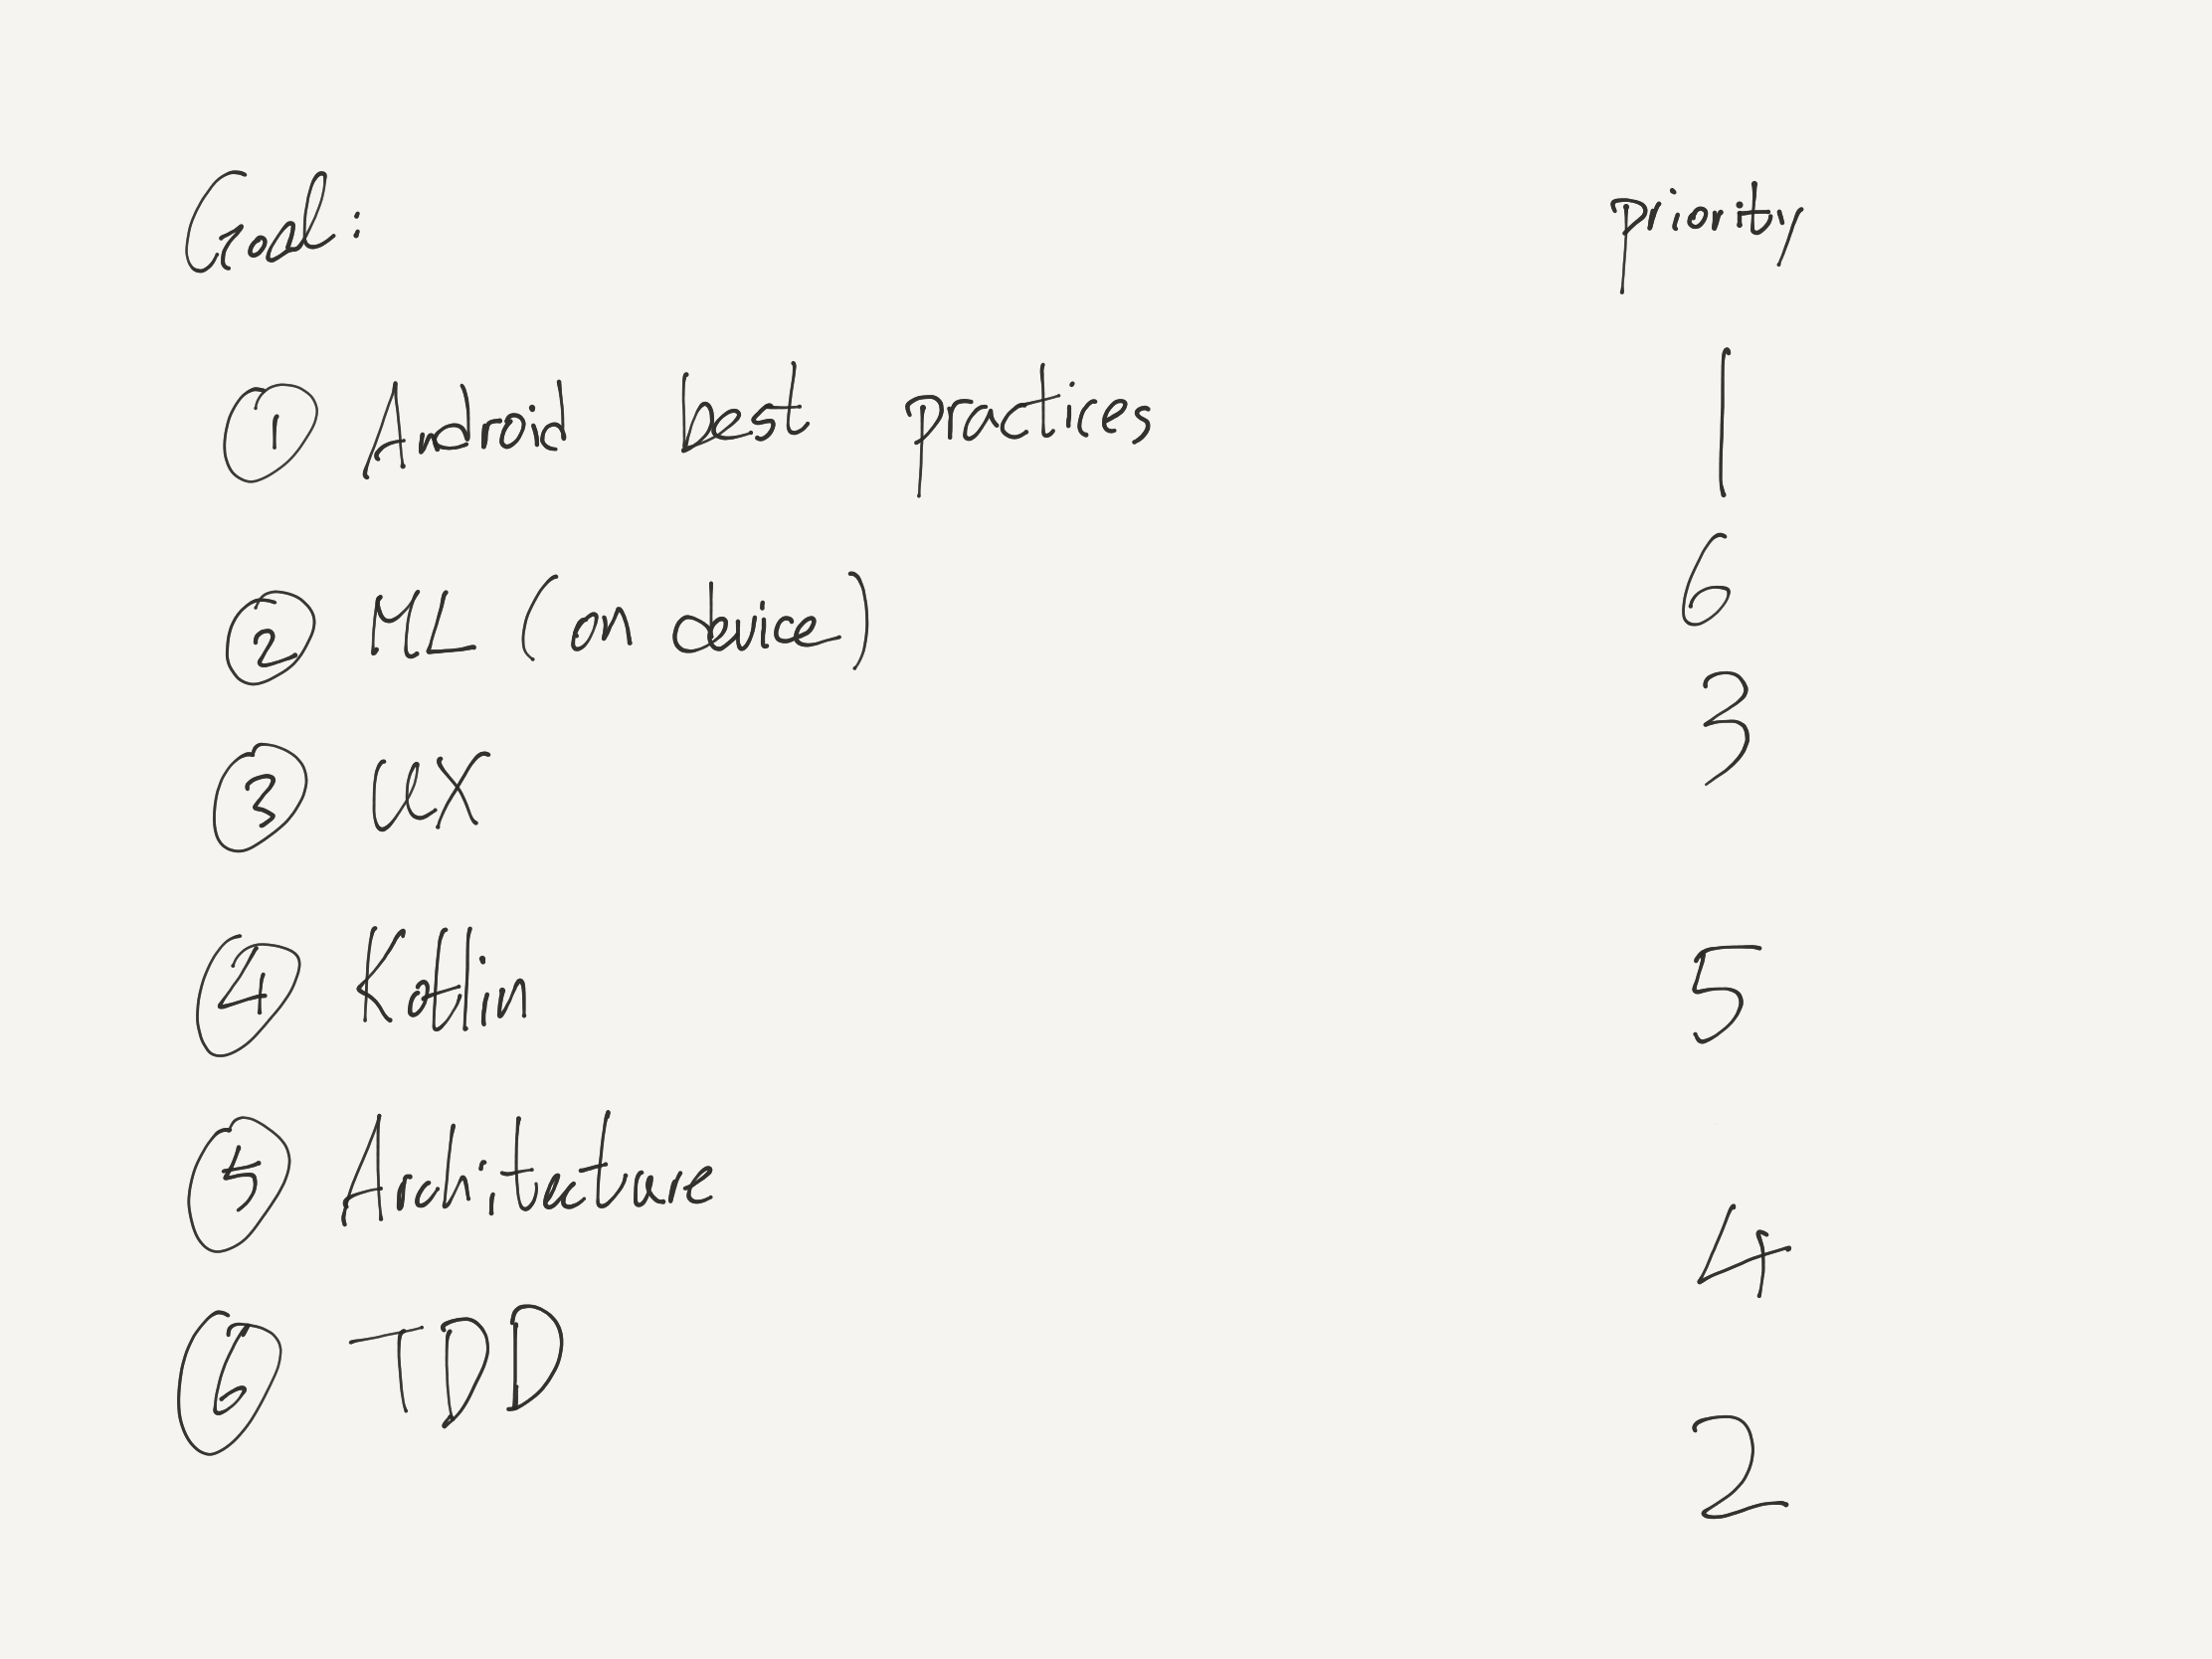 Goal: priority
① Android best practices 1
② ML (on device) 6
③ UX 3
④ Kotlin 5
⑤ Architecture 4
⑥ TDD 2